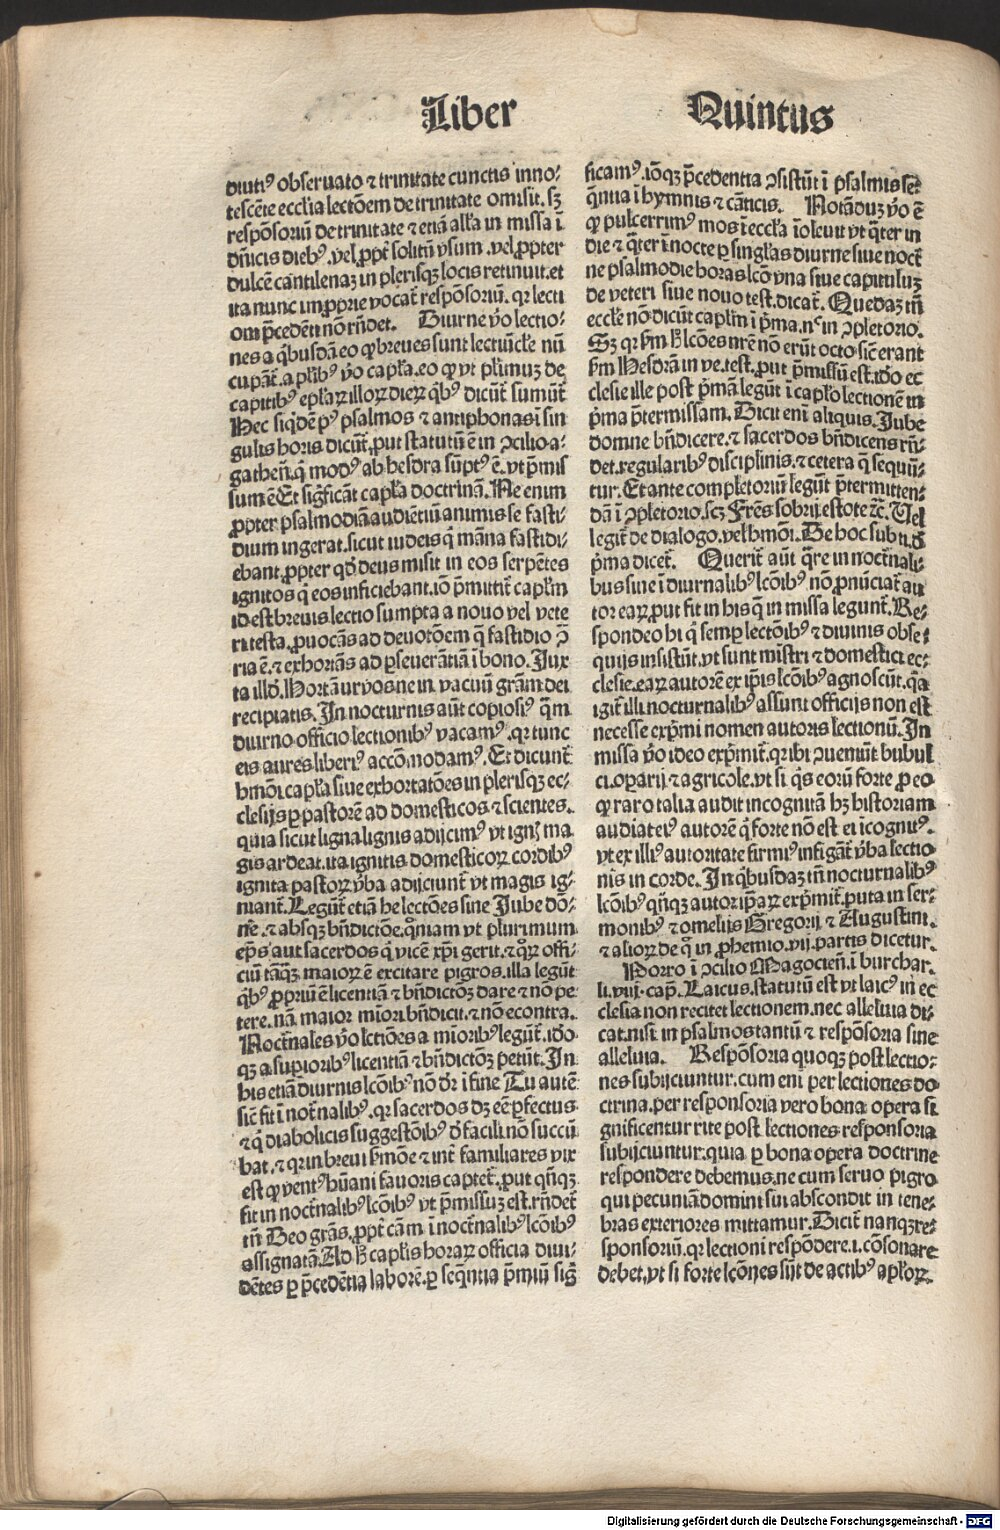 Liber Quintus
diutiꝰ obseruato ⁊ trinitate cunctis inno-
tescẽte ecclĩa lectõem de trinitate omisit. sꝫ
respõsoriũ de trinitate ⁊ etiã allã in missa ĩ
dñicis diebꝰ. vel ꝓpt̃ solitũ vsum. vel ꝓpter
dulcẽ cantilenaꝫ in plerisqꝫ locis retinuit. et
ita nunc imꝓprie vocat̃ respõsoriũ. qꝛ lecti
oni p̃cedẽti nõ rñdet. Diurne ꝟo lectio-
nes a qͥbusdã eo ꝙ breues sunt lectiũcl̃e nũ
cupãt̃. a pl̃ibꝰ ꝟo capl̃a. eo ꝙ vt pl̃imuꝫ de
capitibꝰ epl̃aꝝ illoꝝ dieꝝ qͥbꝰ dicũt̃ sumũt̃
Hec siqͥdẽ pꝰ psalmos ⁊ antiphonas ĩ sin
gulis horis dicũt̃. ꝓut statutũ ẽ in ꝯcilio a-
gatheñ. qͥ modꝰ ab hesdra sũptꝰ ẽ. vt p̃mis
sum ẽ Et sig̃ficãt capl̃a doctrinã. Ne enim
ꝓpter psalmodiã audiẽtiũ animis se fasti-
dium ingerat. sicut iudeis qͥ mãna fastidi-
ebant. ꝓpter qđ deus misit in eos serpẽtes
ignitos qͥ eos inficiebant. iõ p̃mittit̃ capl̃m
id est breuis lectio sumpta a nouo vel vete
ri testa. ꝓuocãs ad deuotõem q̃ fastidio ꝯ̃
ria ẽ. ⁊ exhortãs ad ꝑseuerãtiã ĩ bono. Jux
ta illđ. Hortamur vos ne in vacuũ grãm dei
recipiatis. In nocturnis aũt copiosiꝰ q̃m
diurno officio lectionibꝰ vacamꝰ. qꝛ tunc
eis aures liberiꝰ accõmodamꝰ. Et dicunt̃
hmõi capl̃a siue exhortatões in plerisqꝫ ec-
clesijs ꝑ pastorẽ ad domesticos ⁊ scientes.
quia sicut ligna lignis adijcimꝰ vt ignꝭ ma
gis ardeat. ita ignitis domesticoꝝ cordibꝰ
ignita pastoꝝ ꝟba adijciunt̃ vt magis ig-
niant̃. Legũt̃ etiã he lectões sine Jube dõ-
ne. ⁊ absqꝫ bñdictõe. qm̃niam vt plurimum
ep̃s aut sacerdos qͥ vicẽ xp̃i gerit. ⁊ qͦꝝ offi-
ciũ tãqꝫ maioꝝ ẽ excitare pigros. illa legũt
qͥbꝰ ꝓpriũ ẽ licentiã ⁊ bñdictõꝫ dare ⁊ nõ pe-
tere. nã maior mĩori bñdicit. ⁊ nõ econtra.
Noct̃nales ꝟo lctiões a mĩoribꝰ legũt̃. ido-
qꝫ a suꝑioribꝰ licentiã ⁊ bñdictõꝫ petũt. In
his etiã diurnis lcõibꝰ nõ đr ĩ fine Tu autẽ
sic̃ fit ĩ noct̃nalibꝰ. qꝛ sacerdos dꝫ eẽ ꝑfectus
⁊ qͥ diabolicis suggestõibꝰ đ facili nõ succũ
bat. ⁊ qꝛ in breui s̃mõe ⁊ int̃ familiares vix
est ꝙ ventꝰ hũani fauoris captet̃. ꝓut qñqꝫ
fit in noct̃nalibꝰ lcõibꝰ vt p̃missuꝫ est. rñdet̃
tñ Deo grãs. ꝓpt̃ cãm ĩ noct̃nalibꝰ lcõibꝰ
assignatã. Ad h̃ capl̃is horaꝝ officia diui-
dẽtes ꝑ p̃cedẽtia laborẽ. ꝑ seq̃ntia p̃miũ sig̃
ficamꝰ. iõqꝫ p̃cedentia ꝯsistũt ĩ psalmis se-
q̃ntia ĩ hymnis ⁊ cãticis. Notãduꝫ ꝟo ẽ
ꝙ pulcerrimꝰ mos ĩ eccl̃a ĩoleuit vt q̃ter in
die ⁊ q̃ter ĩ nocte ꝑ singl̃as diurne siue noct̃
ne psalmodie horas lcõ vna siue capituluꝫ
de veteri siue nouo test. dicat̃. Quedaꝫ tñ
eccl̃e nõ dicũt capl̃m ĩ p̃ma. nec in ꝯpletorio.
Sꝫ qꝛ s̃m h̃ lcões nr̃e nõ erũt octo sic̃ erant
s̃m Hesdrã in ve. test. ꝓut p̃missũ est. ido ec
clesie ille post p̃mã legũt ĩ capl̃o lectionẽ in
p̃ma p̃termissam. Dicit enĩ aliquis. Jube
domne bñdicere. ⁊ sacerdos bñdicens rñ-
det. regularibꝰ disciplinis. ⁊ cetera q̃ sequũ-
tur. Et ante completoriũ legũt p̃termitten-
dã ĩ ꝯpletorio. scꝫ Fr̃es sobrij estote ⁊c̃. Vel
legit̃ de dialogo. vel hmõi. De hoc sub ti. đ
p̃ma dicet̃. Querit̃ aũt q̃re in noct̃nali-
bus siue ĩ diurnalibꝰ lcõibꝰ nõ ꝓnũciat̃ au
tor eaꝝ. ꝓut fit in his q̃ in missa legunt̃. Re-
spondeo hi qͥ semꝑ lectõibꝰ ⁊ diuinis obse-
quijs insistũt. vt sunt mĩstri ⁊ domestici ec-
clesie. eaꝝ autorẽ ex ip̃is lcõibꝰ agnoscũt. qꝛ
igit̃ illi nocturnalibꝰ assunt officijs non est
necesse exp̃mi nomen autoris lectionũ. In
missa ꝟo ideo exp̃mit̃. qꝛ ibi ꝯueniũt bubul
ci. oꝑarij ⁊ agricole. vt si qͥs eorũ forte ꝓ eo
ꝙ raro talia audit incognitã hꝫ historiam
audiat eiꝰ autorẽ qͥ forte nõ est ei ĩcognitꝰ.
vt ex illiꝰ autoritate firmiꝰ infigãt̃ ꝟba lectio
nis in corde. In qͥbusdaꝫ tñ nocturnalibꝰ
lcõibꝰ qñqꝫ autor ip̃aꝝ exp̃mit̃. puta in ser-
monibꝰ ⁊ omelijs Gregorij ⁊ Augustini.
⁊ alioꝝ de qͥ in ꝓhemio. vij. partis dicetur.
Porro ĩ ꝯcilio Magocieñ. ĩ burchar.
li. viij. cap̃. Laicus. statutũ est vt laicꝰ in ec
clesia non recitet lectionem. nec alleluia di-
cat. nisi in psalmos tantũ ⁊ respõsoria sine
alleluia. Respõsoria quoqꝫ post lectio-
nes subijciuntur. cum eni per lectiones do-
ctrina. per responsoria vero bona opera si
gnificentur rite post lectiones responsoria
subijciuntur. quia ꝑ bona opera doctrine
respondere debemus. ne cum seruo pigro
qui pecuniã domini sui abscondit in tene-
bras exteriores mittamur. Dicit̃ nanqꝫ re-
sponsoriũ. qꝛ lectioni respõdere .i. cõsonare
debet. vt si forte lcõnes sũt de actibꝰ apl̃oꝝ.
Digitalisierung gefördert durch die Deutsche Forschungsgemeinschaft - DFG